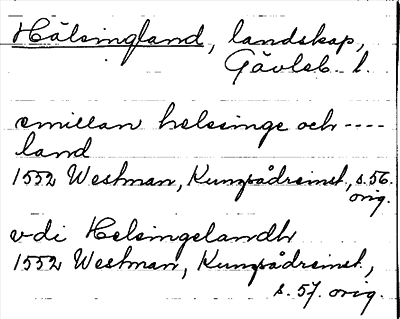 Hälsingland, landskap,
Gävleb. l.
emillan helsinge och ----
land
1552 Westman, Kungsådreinst., s. 56.
orig.
vdi Helsingelandh
1552 Westman, Kungsådreinst.,
s. 57. orig.